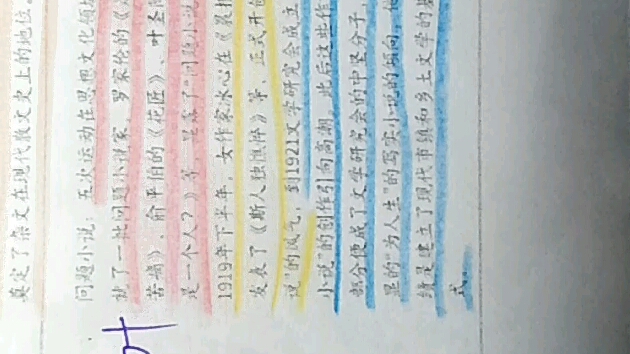 奠定了杂文在现代散文史上的地位。
问题小说：五四运动在思想文化领域
了一批问题小说家，罗家伦的《
》、俞平伯的《花匠》、叶圣陶
是一个人？》等，显露了“问题小说
1919年下半年，女作家冰心在《晨报
发表了《斯人独憔悴》等，正式开创
说”的风气，到1921文学研究会成立
小说”的创作引向高潮。此后这些作
部分便成了文学研究会的中坚分子，
显的“为人生”的写实小说的倾向，他
绩是建立了现代市镇和乡土文学的基
式。